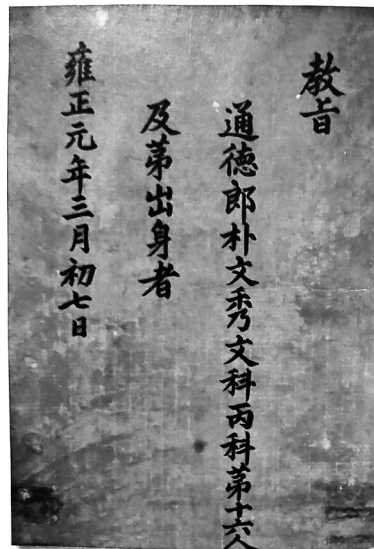 教旨
通德郎朴文秀文科丙科第十六人
及第出身者
雍正元年三月初七日